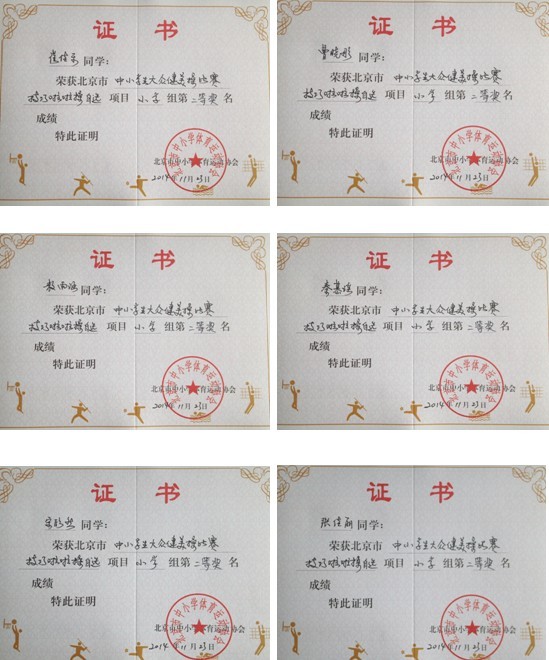 证 书
同学：
荣获北京市 中小学生大众健美操比赛
技巧啦啦操自选 项目 小学 组第 二等奖 名
成绩
特此证明
北京市中小学体育运动协会
2014年11月23日
证 书
曹晓彤 同学：
荣获北京市 中小学生大众健美操比赛
技巧啦啦操自选 项目 小学 组第 二等奖 名
成绩
特此证明
北京市中小学体育运动协会
2014年11月23日
证 书
同学：
荣获北京市 中小学生大众健美操比赛
技巧啦啦操自选 项目 小学 组第 二等奖 名
成绩
特此证明
北京市中小学体育运动协会
2014年11月23日
证 书
同学：
荣获北京市 中小学生大众健美操比赛
技巧啦啦操自选 项目 小学 组第 二等奖 名
成绩
特此证明
北京市中小学体育运动协会
2014年11月23日
证 书
同学：
荣获北京市 中小学生大众健美操比赛
技巧啦啦操自选 项目 小学 组第 二等奖 名
成绩
特此证明
北京市中小学体育运动协会
2014年11月23日
证 书
张佳 同学：
荣获北京市 中小学生大众健美操比赛
技巧啦啦操自选 项目 小学 组第 二等奖 名
成绩
特此证明
北京市中小学体育运动协会
2014年11月23日